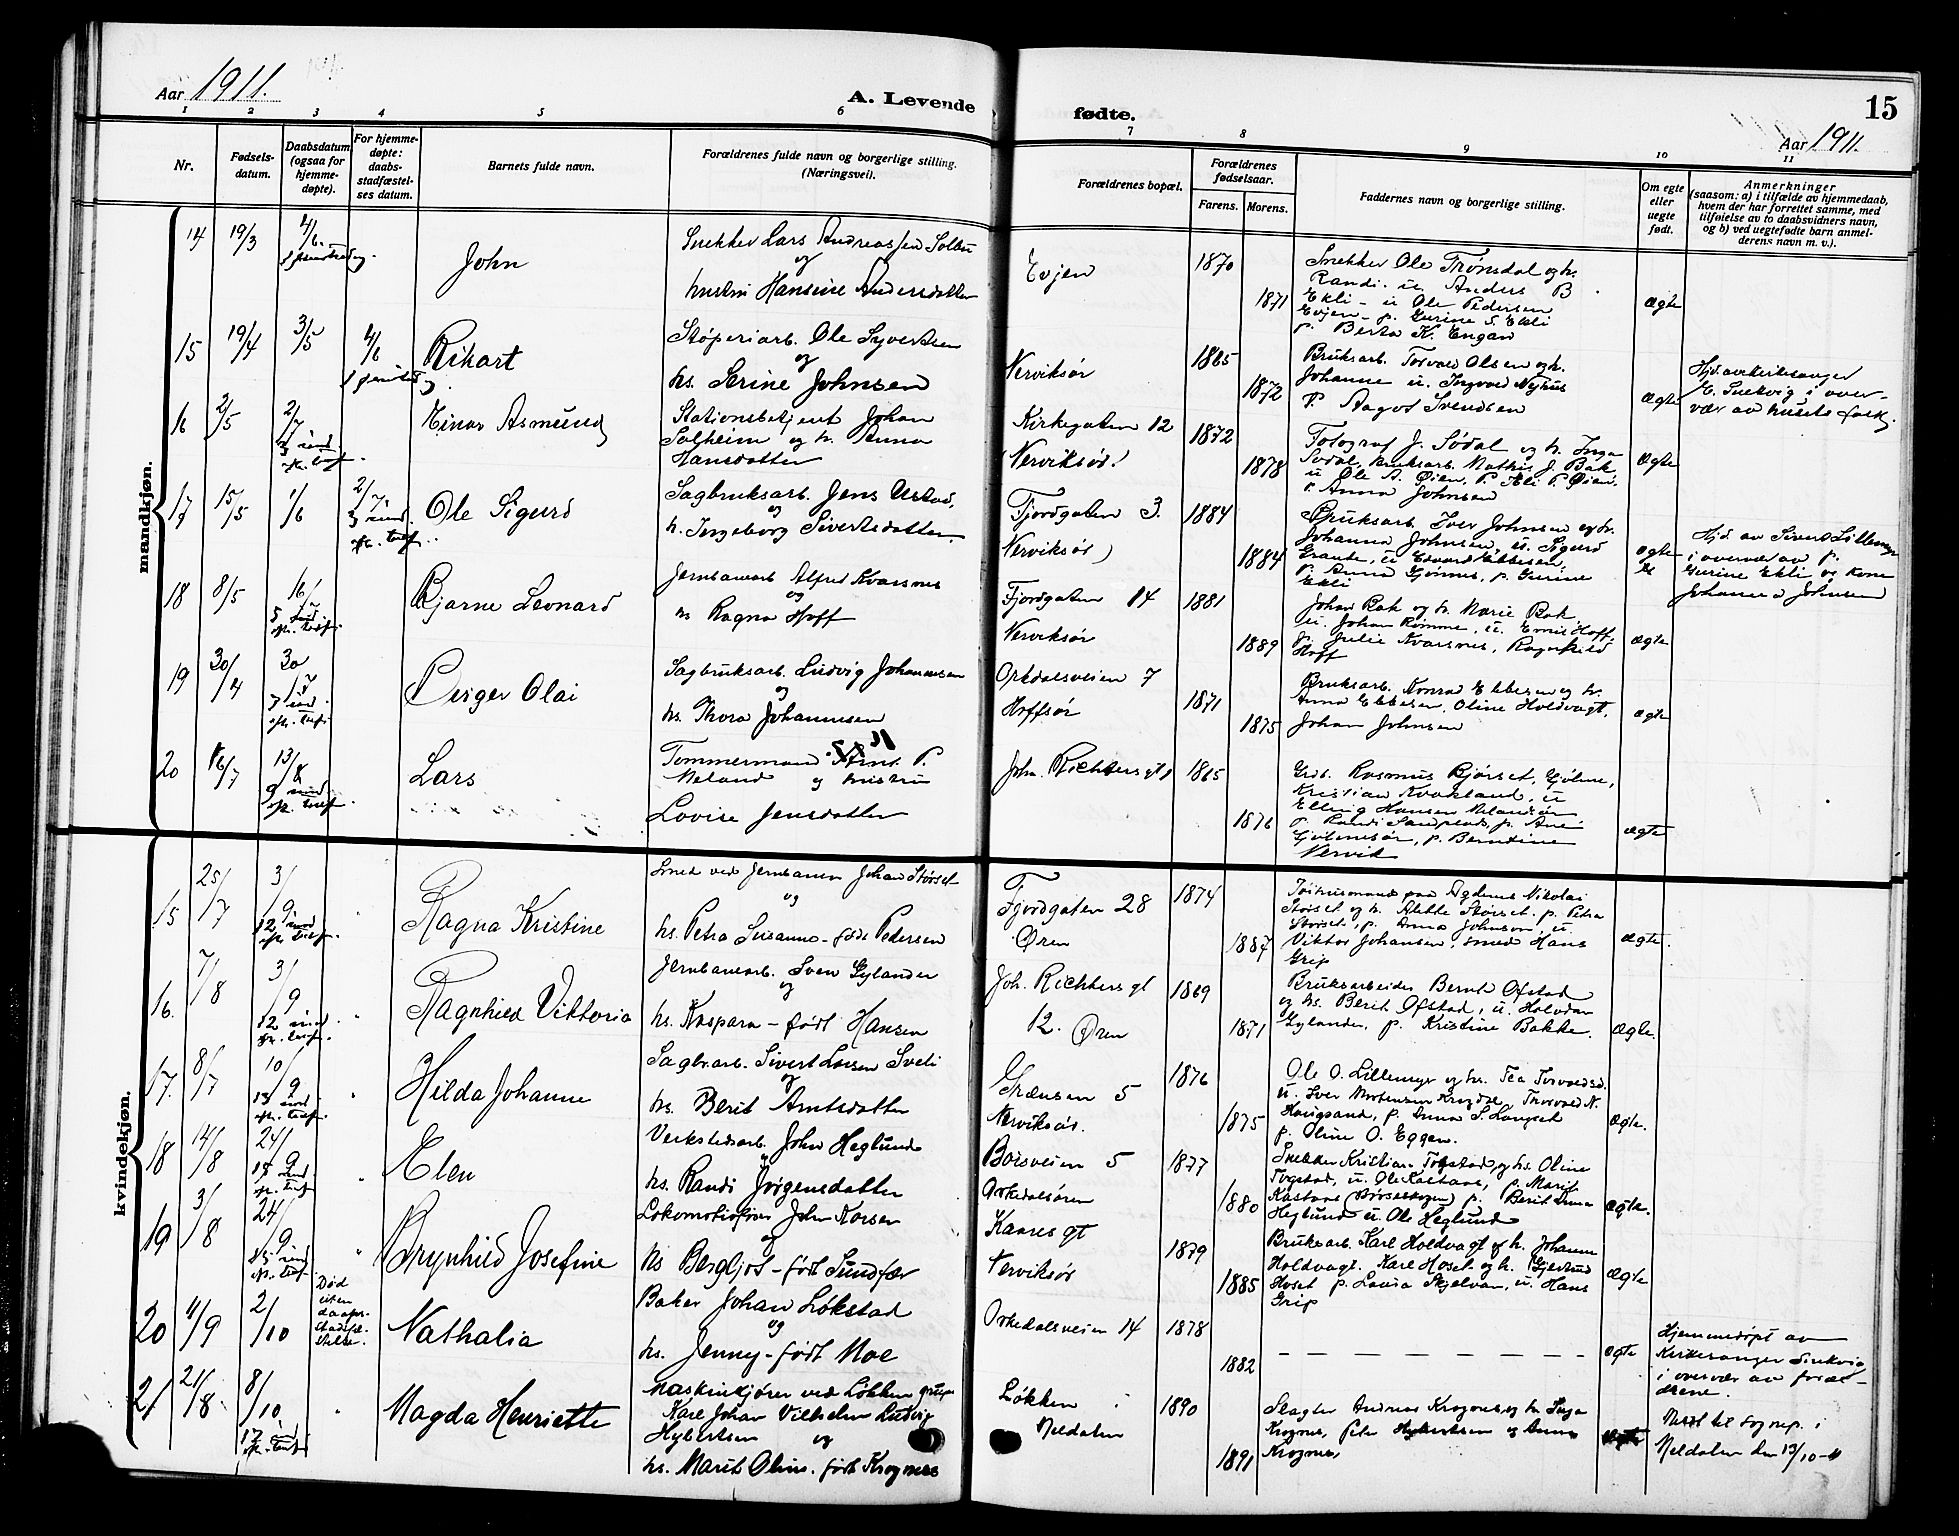 Aar 1911.
A. Levende
fødte.
15
Aar 1911.
1 2 3 4 5 6
7 8 9 10 11
Nr.
Fødsels-
datum.
Daabsdatum
(ogsaa for
hjemme-
døpte).
For hjemme-
døpte:
daabs-
stadfæstel-
ses datum.
Barnets fulde navn.
Forældrenes fulde navn og borgerlige stilling.
(Næringsvei).
Forældrenes bopæl.
Forældrenes
fødselsaar.
Farens. Morens.
Faddernes navn og borgerlige stilling.
Om egte
eller
uegte
født.
Anmerkninger
(saasom: a) i tilfælde av hjemmedaab,
hvem der har forrettet samme, med
tilføielse av to daabsvidners navn,
og b) ved uegtefødte barn anmel-
derens navn m. v.).
mandkjøn.
14 19/3 4/6. John
Snekker Lars Andreassen Solbu
og
hustru Hansine Andersdatter
Evjen 1870 1871
Snekker Ole Trønsdal og h.
Randi. u Anders B
Ekli - u Ole Pedersen
Evjen - p. Gurine S. Ekli
p. Berta K. Engan
ægte
15 19/4 3/5 4/6 Rikart
Støperiarb. Ole Syvertsen
og
hs. Serine Johnsen
Nerviksør 1865 1872
Bruksarb. Torvald Olsen og h.
Johanne u. Ingvald Nyhus
p. Aagot Svendsen
ægte
Hjd. av kirkesanger
E. Snekvig i over-
vær av husets folk.
16 2/5 2/7 Einar Asmund
3 sønd.
Stationsbetjent Johan
Solheim og h. Anna
Hansdatter
Kirkegaten 12
(Nerviksør) 1872 1878
Fotograf J. Sødal og h. Inga
Sødal, bruksarb. Mathis J. Bak
u Ole A. Øien, p. Eli P. Øien.
p. Anna Johnsen
ægte
17 15/5 1/6 2/7 Ole Sigurd
Sagbruksarb. Jens Ustad,
og
h. Ingeborg Sivertsdatter.
Fjordgaten 3.
Nerviksør) 1884 1884
Bruksarb. Iver Johnsen og h.
Johanna Johnsen, u. Sigurd
Grande, u Edvard Ebbesen,
p. Anna Gjønnes, p. Gurine
Ekli
ægte
Hjd. av Sivert Lillemyr
i overvær av p.
Gurine Ekli og kone
Johanna Johnsen
18 8/5 16/7 Bjarne Leonard
Jernbanearb Alfred Kvarsnes
og
hs Ragna Hoff
Fjordgaten 14
Nerviksør 1881 1889
Johan Bak og h. Marie Bak,
u. Johan Rømme, u. Emil Hoff,
p. Julie Kvarsnes, Ragnhild
Hoff
ægte
19 30/4 30/7 Birger Olai
Sagbruksarb. Ludvig Johannesen
og
hs. Thora Johannesen
Orkdalsveien 7
Hoffsør 1871 1875
Bruksarb. Konrad Ebbesen og h.
Anna Ebbesen, Oline Holdvagt,
Johan Johnsen
ægte
20 16/7 13/8 Lars
Tømmermand P.
Meland og hustru
Lovise Jensdatter
Joh. Richters gt 1865 1876
Grdb. Rasmus Bjørset, Gjølme,
Kristian Kvakland, u
Elling Hansen Melandsør
p. Randi Sandplads, p. Ane
Gjølmesør, p. Berntine
Nervik
ægte
kvindekjøn.
15 25/7 3/9 Ragna Kristine
Smed ved Jernbanen Johan Størset
og
hs. Petra Susanna - født Pedersen
Fjordgaten 28
Øren 1874 1887
Tøihusmand paa Agdenes Nikolai
Størset og h. Alette Størset. p. Petra
Størset, p. Anna Johnsen, u
Viktor Johansen, smed Hans
Grip
ægte.
16. 7/8 3/9 Ragnhild Viktoria
12. sønd.
Jernbanearb. Sven Gylander
og
hs. Kaspara - født Hansen
Joh. Richters gt
12. Øren 1869 1871
Bruksarbeider Bernt Ofstad
og hs. Berit Ofstad, u. Halvdan
Gylander, p. Kristine Bakke.
ægte.
17. 8/7 10/9 Hilda Johanne
Sagbr.arb. Sivert Larsen Sveli
og
hs. Berit Arntsdatter
Grænsen 5
Nerviksør. 1876 1875
Ole O. Lillemyr og hs. Tea Torvaldsd.
u. Iver Mortensen Krogdal, Thorvald N.
Haugsand, p. Anna S. Langset
p. Oline O. Eggen.
ægte.
18 14/8 24/9 Elen
Verkstedsarb. John Heglund
hs. Randi Jørgensdatter
Borsveien 5
Orkedalsøren 1877 1880
Snekker Kristian Togstad og hs. Oline
Togstad, u. Ole Kastaas, p. Marit
Kastaas (Børseskogen) p. Berit Anna
Heglund u. Ole Heglund
ægte.
19 3/8 24/9 Brynhild Josefine
Lokomotivfører John Korsen
og
hs Bergljot - født Sundfær
Kaares gt
Nerviksør 1879 1885
Bruksarb. Karl Holdvagt og h. Johanna
Holdvagt. Karl Hoset og h. Gjertrud
Hoset p. Laura Skjelvan, u. Hans
Grip
ægte
20 4/9 2/10 Nathalia
Død
uten
daaps-
stadfæ-
stelse.
Baker Johan Løkstad
og
hs. Jenny - født Moe
Orkedalsveien 14 1878 1882
ægte
Hjemmedøpt av
Kirkesanger Snekvig
i overvær av foræl-
drene.
21 21/8 8/10 Magda Henriette
Maskinkjører ved Løkken grube
Karl Johan Vilhelm Ludvig
Hybertsen og
hs. Marit Olin. født Krognes
Løkken
Meldalen 1890 1891
Slagter Andreas Krognes og h Inga
Krognes, Peter Hybertsen og Anna
Krognes,
ægte
Meldt til sognep. i
Meldalen den 13/10-11